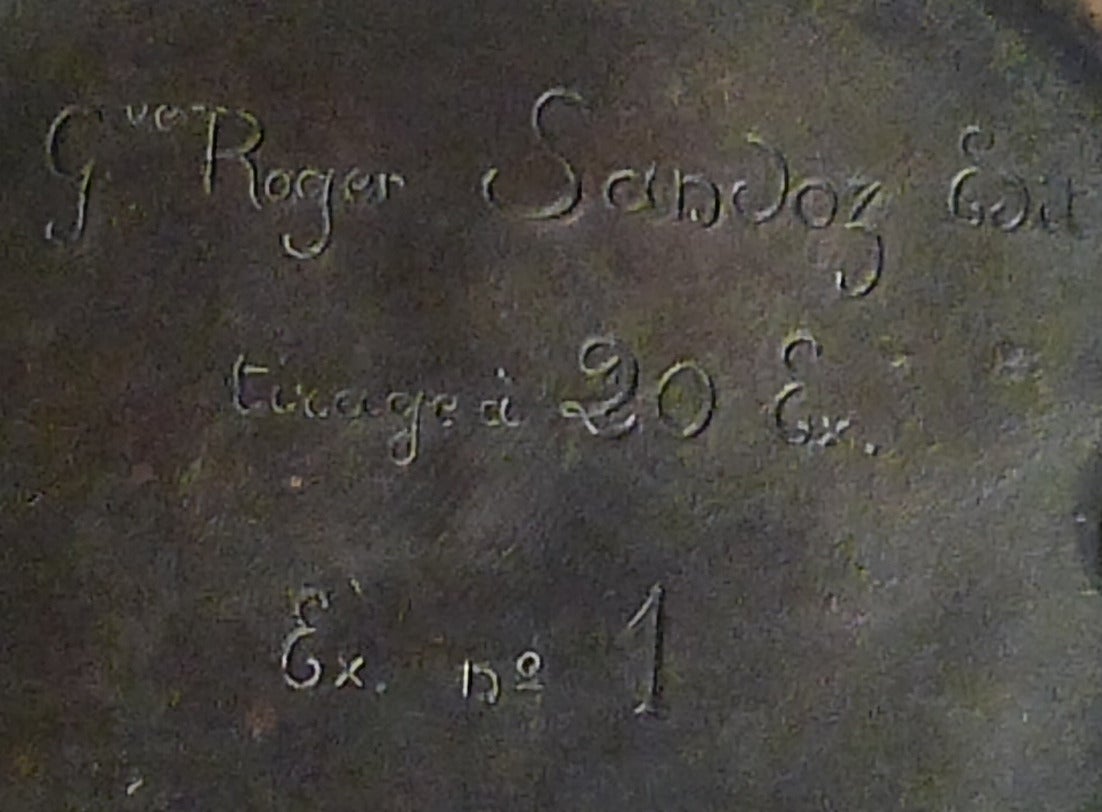 Gve Roger Sandoz Edit
tirage à 20 Ex.
Ex. nº 1